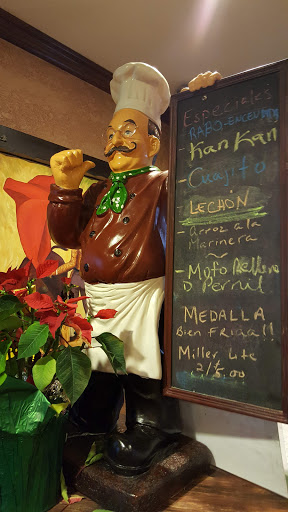 Especiales
RABO-ENCENDIDO
- Kan Kan
- Cuajito
- LECHON
- Arroz a la
Marinera
~
- Mofo Relleno
D Pernil
MEDALLA
Bien FRIA!!
Miller Lite
2/5.00